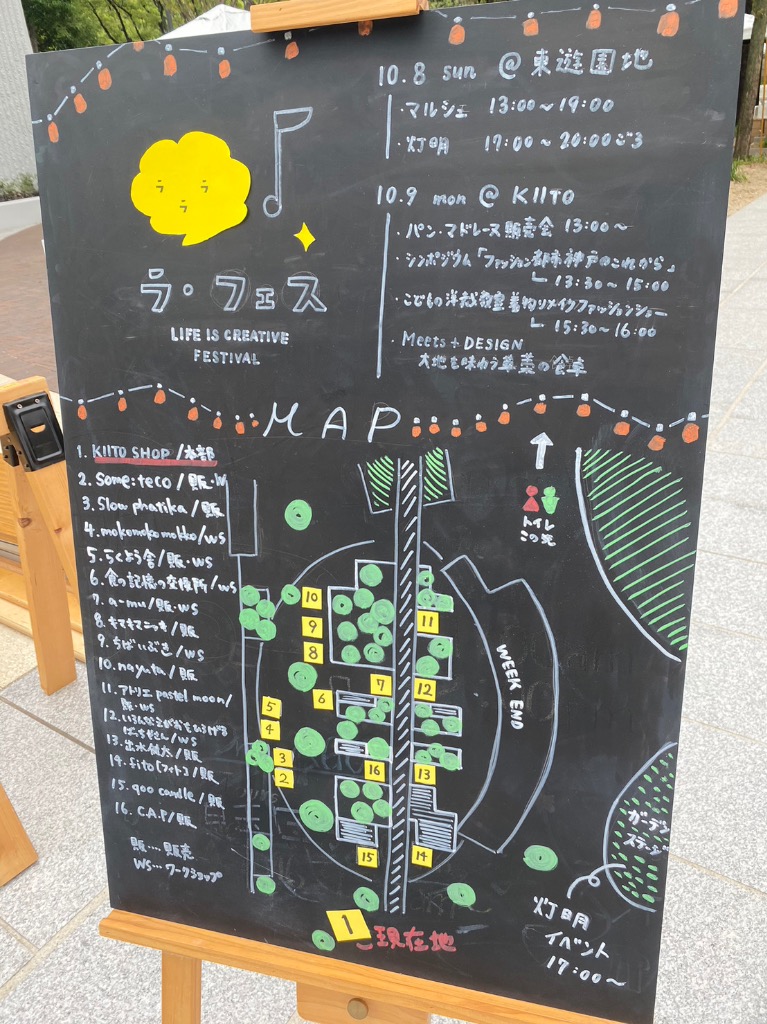 10.8 sun @ 東遊園地
・マルシェ 13:00〜19:00
・灯明 17:00〜20:00ごろ
10.9 mon @ KIITO
・パン・マドレーヌ販売会 13:00〜
・シンポジウム「ファッション都市神戸のこれから」
13:30〜15:00
・こどもの洋裁教室着物リメイクファッションショー
15:30〜16:00
・Meets+DESIGN
大地を味わう草菜の食卓
ララ
ラ
ラ・フェス
LIFE IS CREATIVE
FESTIVAL
MAP
1. KIITO SHOP/本部
2. some:teco/販・W
3. Slow phatika/販
4. mokomoko mokko/WS
5. らくよう舎/販・WS
6. 食の記憶の交換所/WS
7. a-mu/販・WS
8. キマキマニッキ/販
9. ちばいぶき/WS
10. nayuta/販
11. アトリエ pastel moon/
販・WS
12. いろんなこえがおをひろげる
ばっちさん/WS
13. 出水健太/販
14. fito(フィト)/販
15. qoo candle/販
16. C.A.P/販
販…販売
WS…ワークショップ
トイレ
この先
WEEK END
10
9
8
11
7
12
6
5
4
3
2
16
13
15
14
ガーデン
ステージ
灯明
イベント
17:00〜
1
現在地